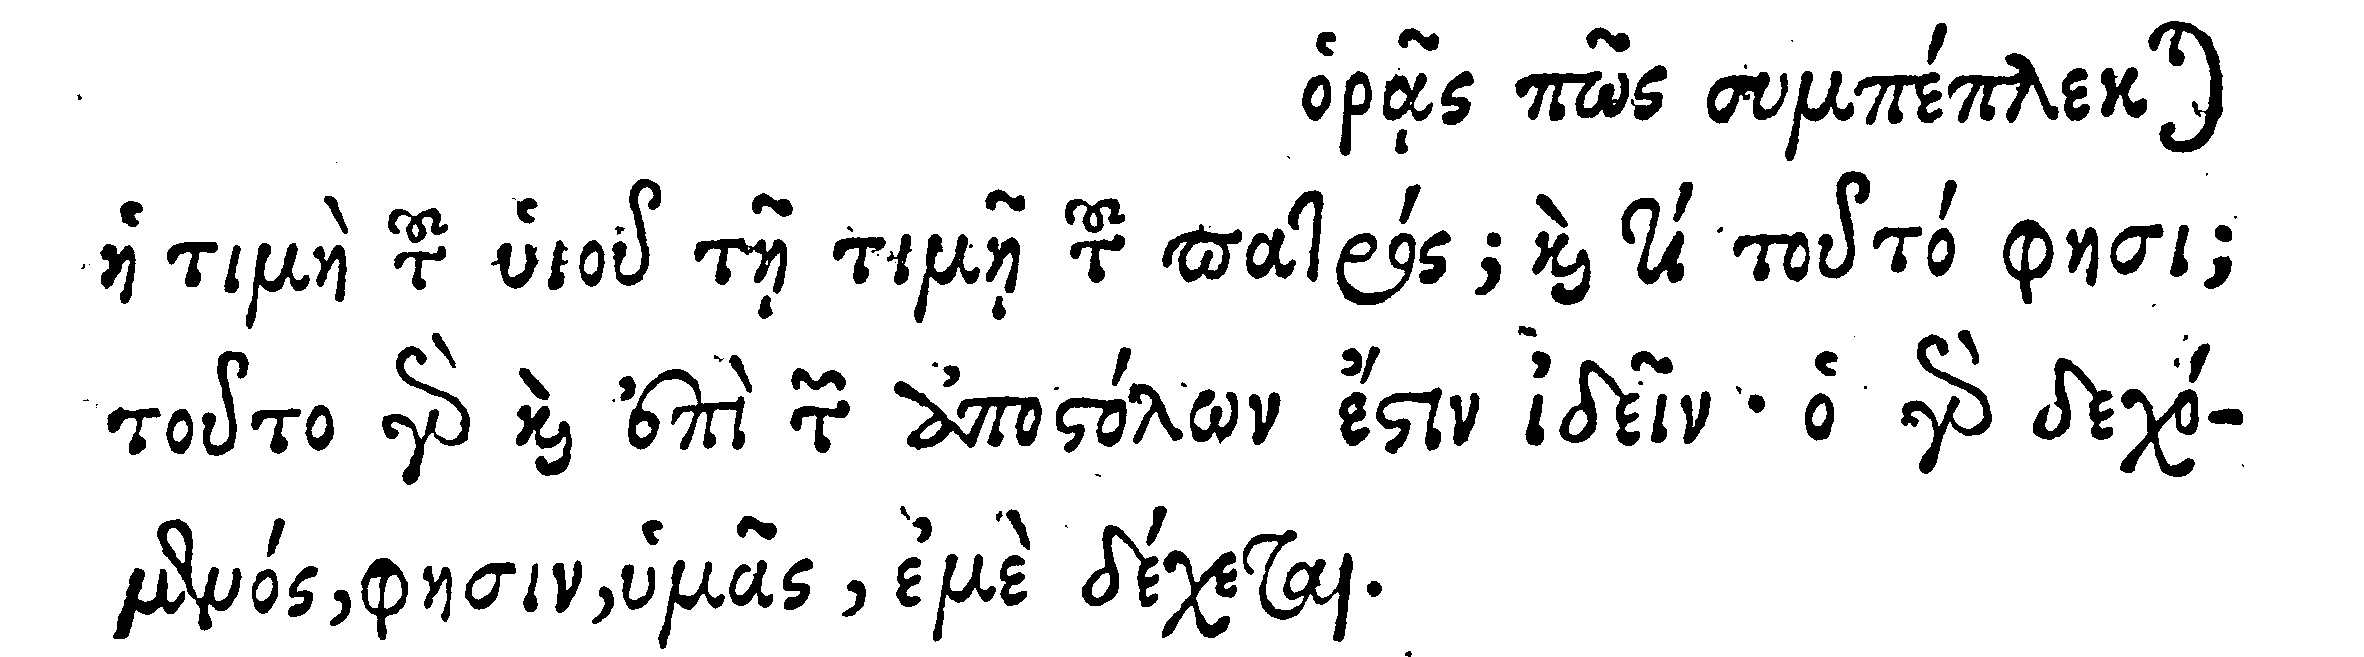 ὁρᾷς πῶς συμπέπλεκται
ἡ τιμὴ τοῦ υἱοῦ τῇ τιμῇ τοῦ πατρός; καὶ τί τοῦτό φησι;
τοῦτο γὰρ καὶ ἐπὶ τῶν ἀποστόλων ἔστιν ἰδεῖν · ὁ γὰρ δεχό-
μενός, φησιν, ὑμᾶς, ἐμὲ δέχεται.